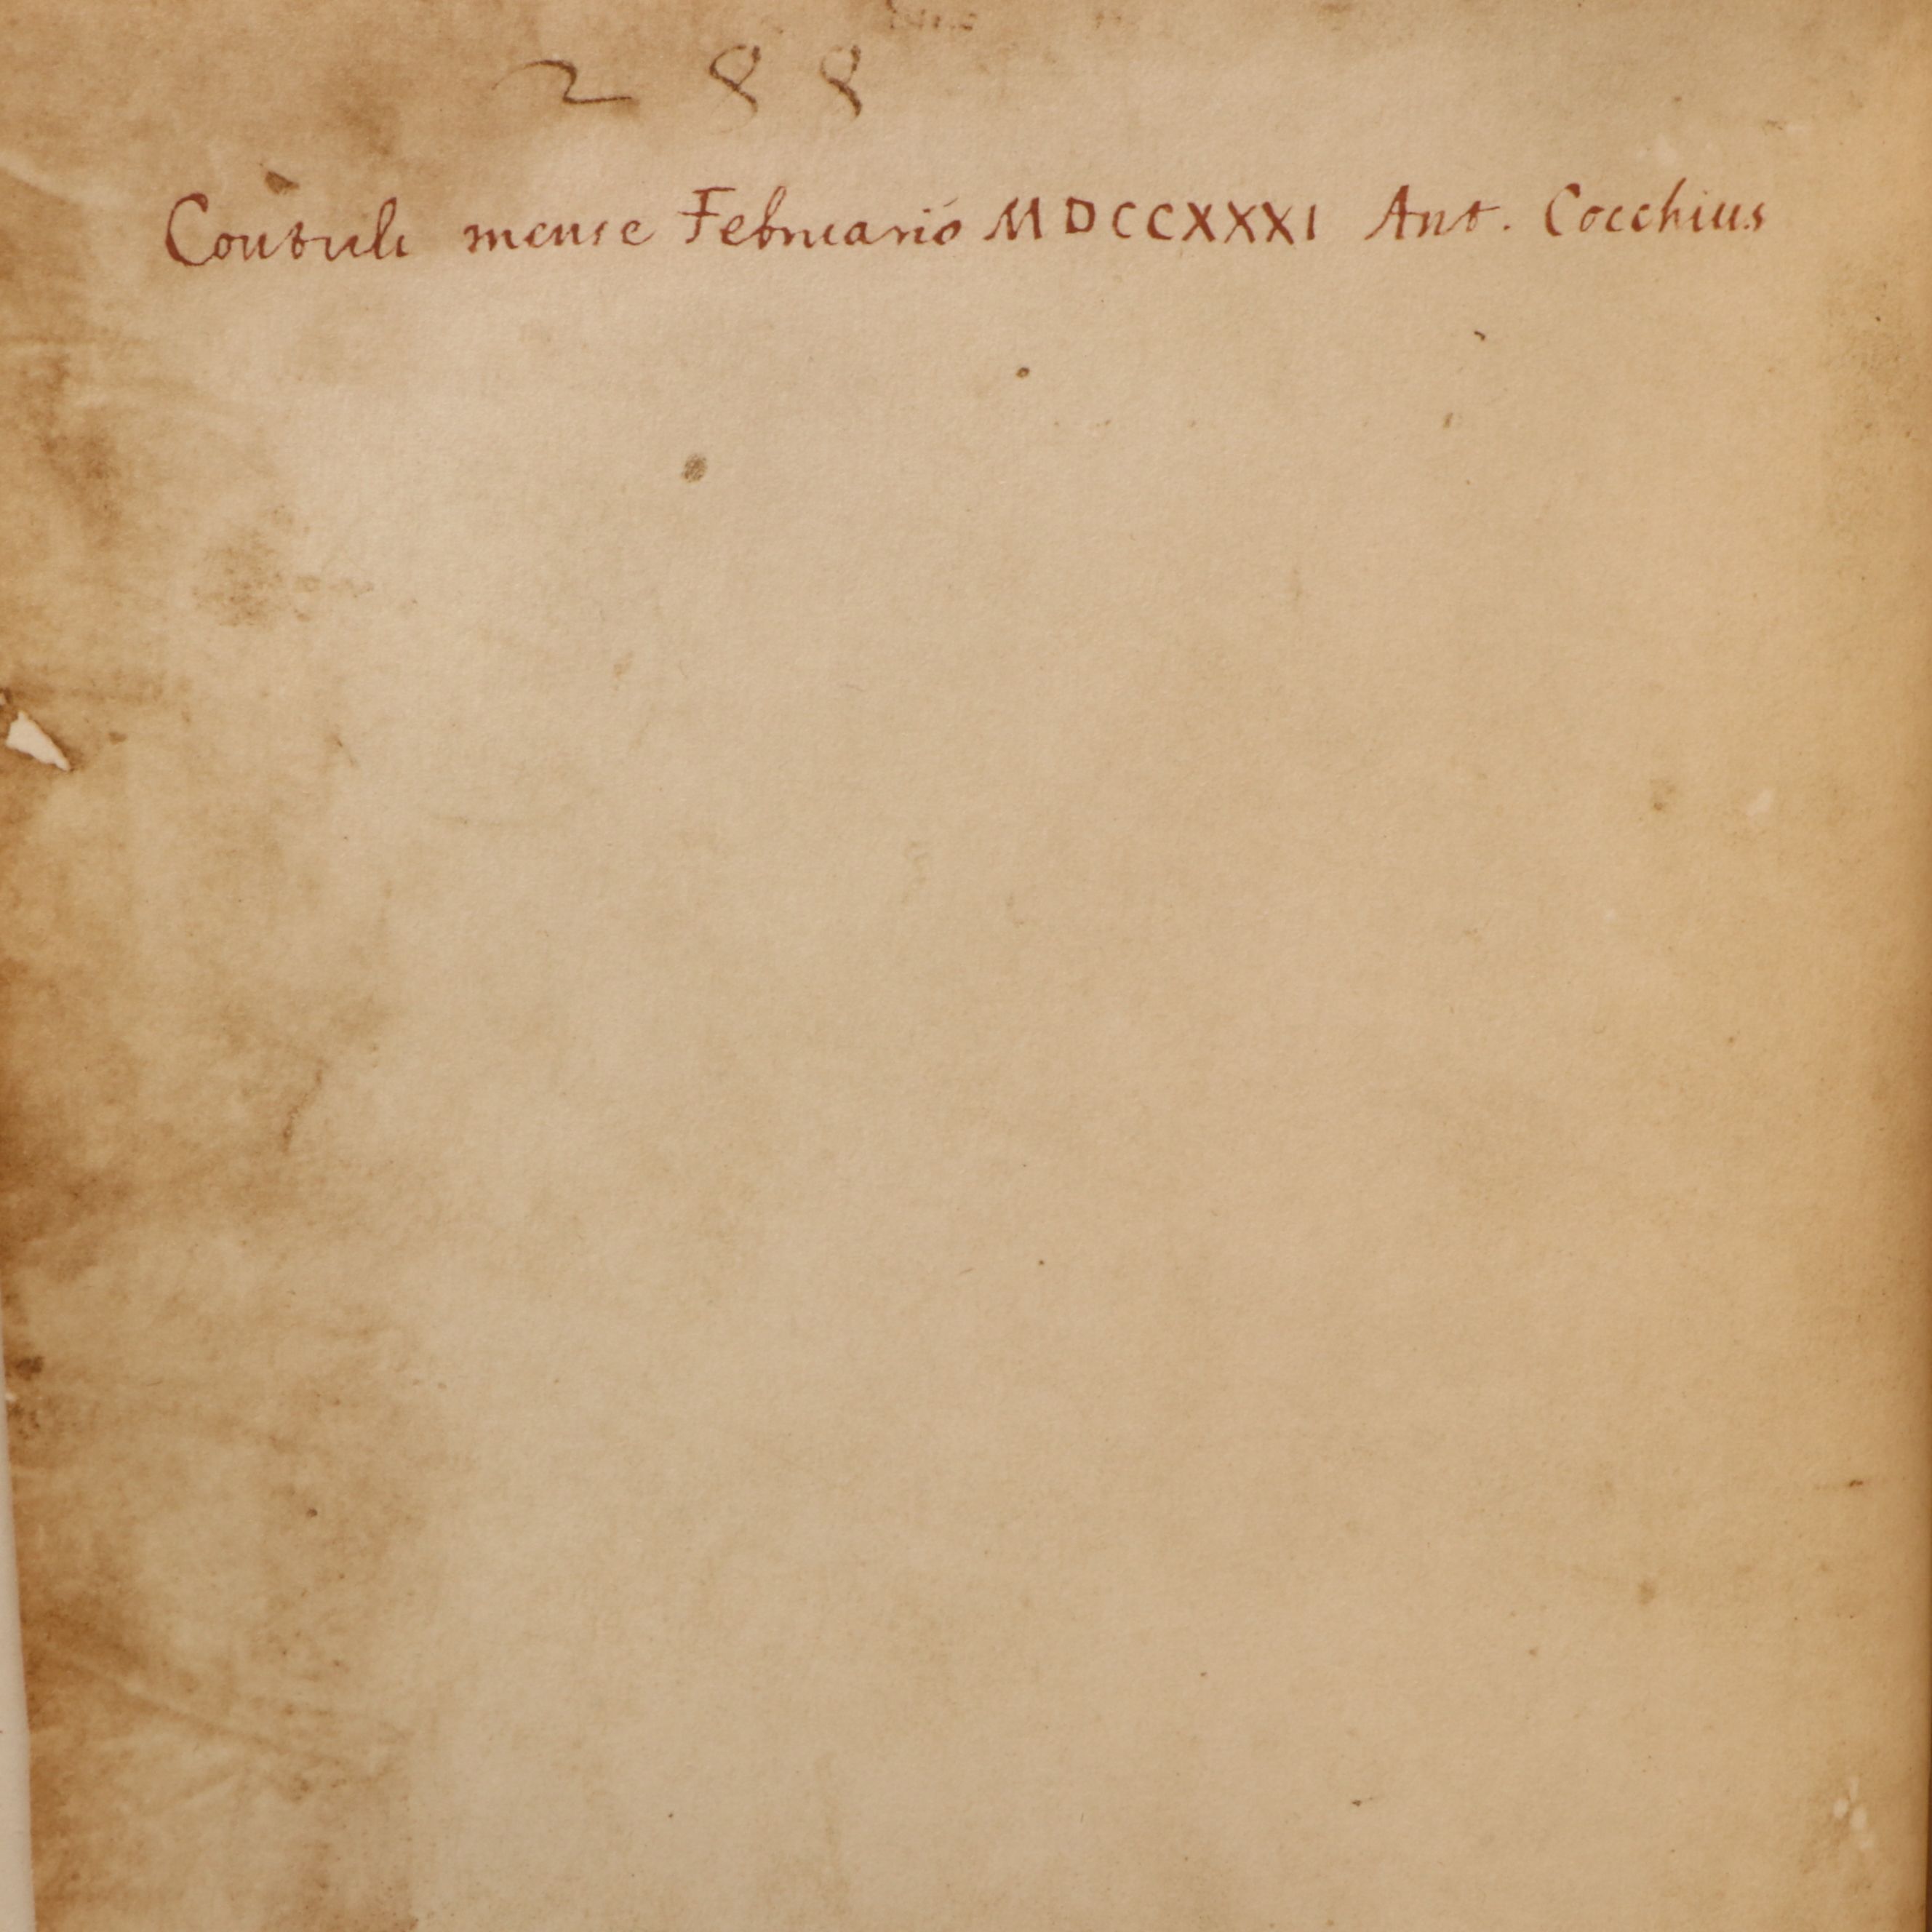 288
Contuli mense Februario MDCCXXXI Ant. Cocchius